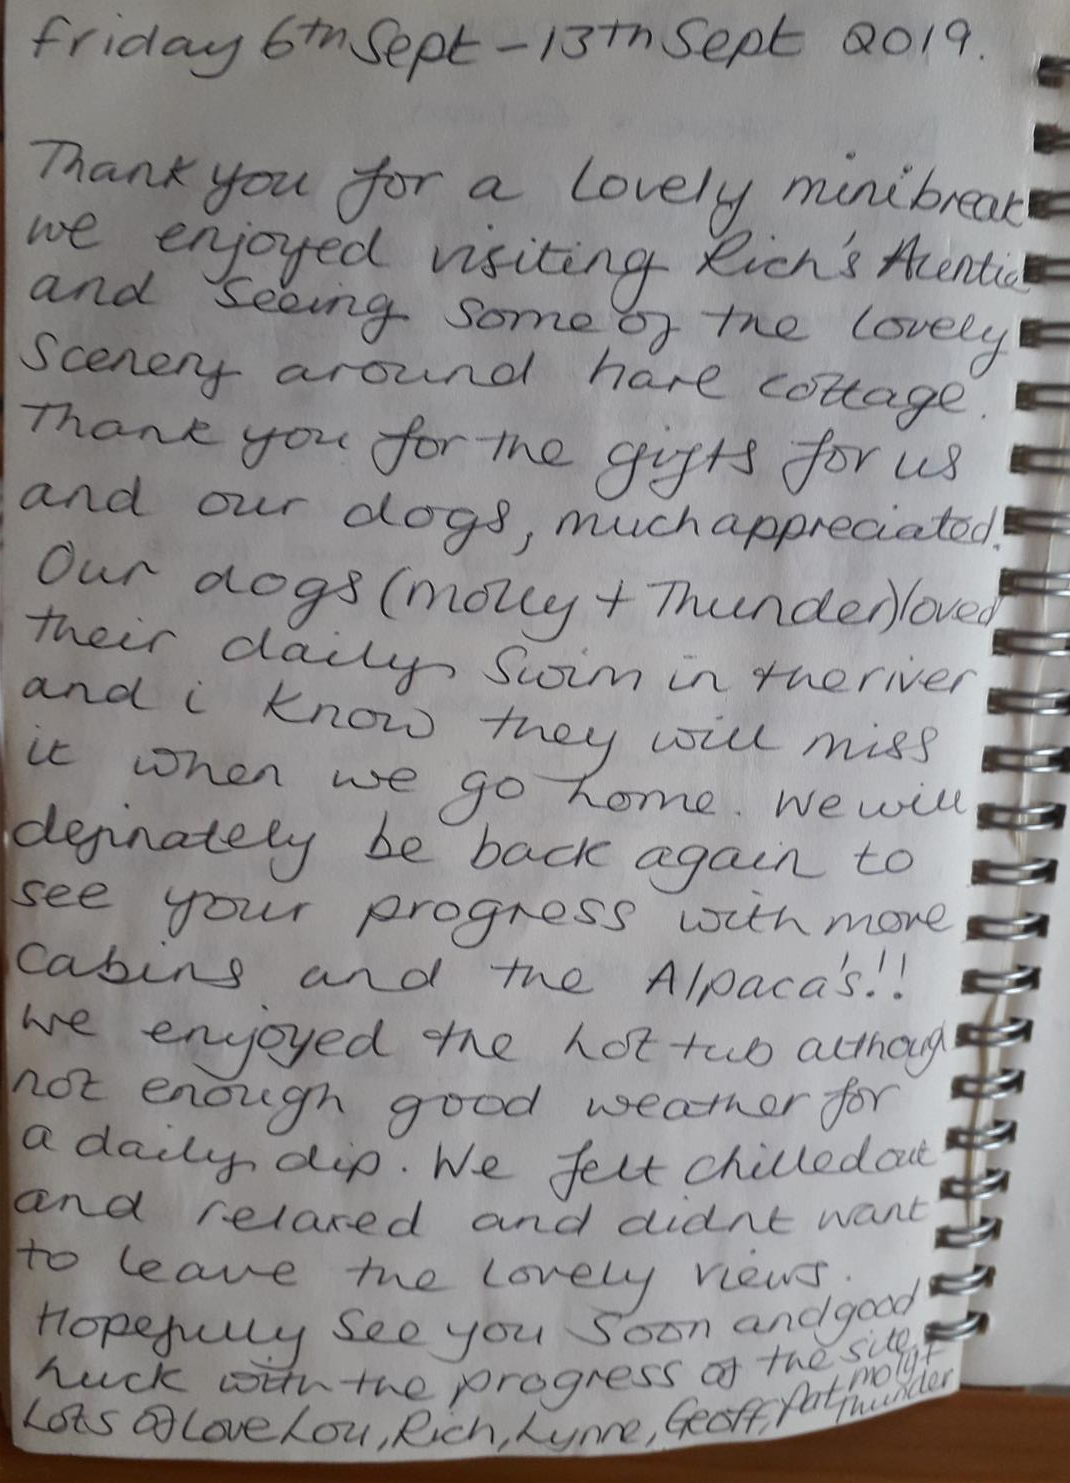 Friday 6th Sept - 13th Sept 2019.
Thank you for a lovely minibreak
we enjoyed visiting Rich's Auntie
and seeing some of the lovely
scenery around hare cottage.
Thank you for the gifts for us
and our dogs, much appreciated.
Our dogs (molly + Thunder) loved
their daily swim in the river
and i know they will miss
it when we go home. We will
definately be back again to
see your progress with more
cabins and the Alpaca's!!!
we enjoyed the hot tub although
not enough good weather for
a daily dip. We felt chilled out
and relaxed and didnt want
to leave the lovely views.
Hopefully see you soon and good
luck with the progress of the site.
Lots of Love Lou, Rich, Lynne, Geoff, Pat, molly +
Thunder